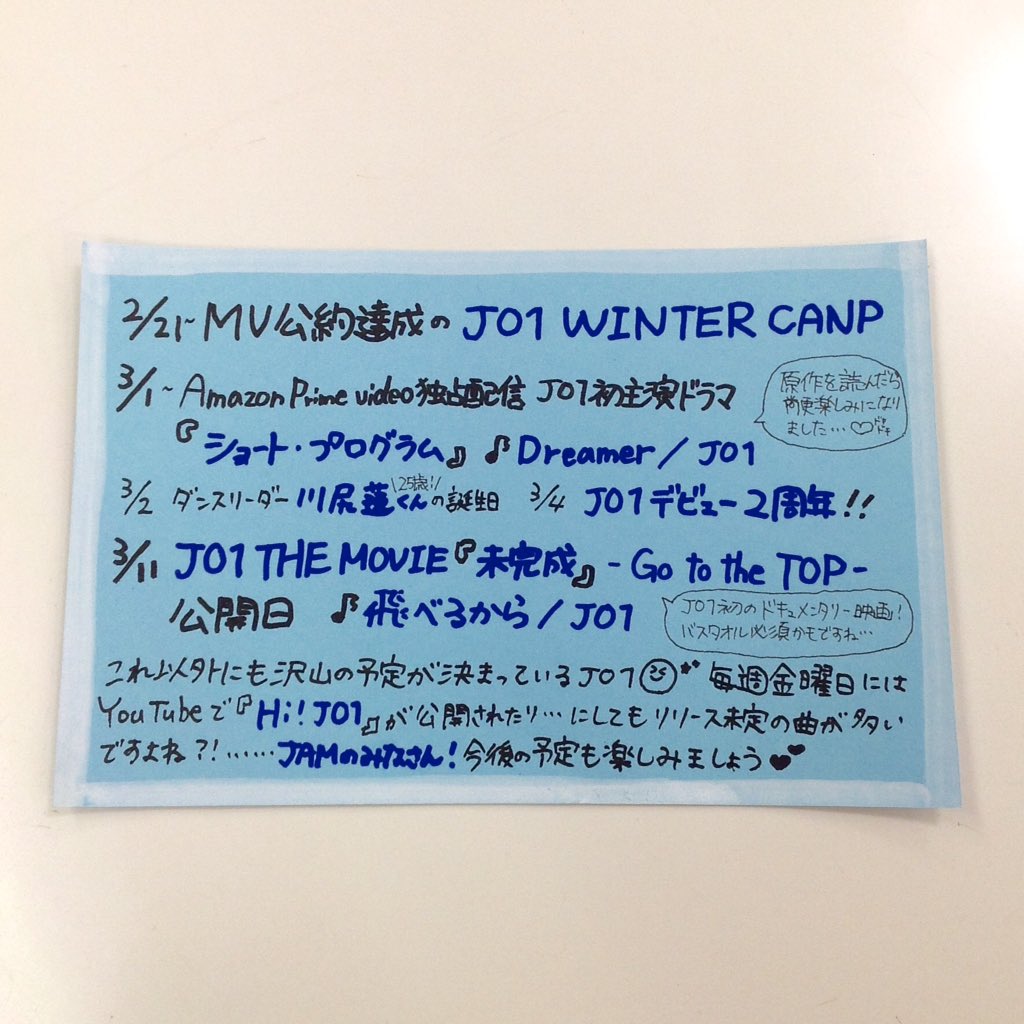 2/21~ MV公約達成の JO1 WINTER CANP
3/1~ Amazon Prime video独占配信 JO1初主演ドラマ
原作を読んだら
尚更楽しみになり
ました…♡
『ショート・プログラム』 ♪ Dreamer / JO1
3/2 ダンスリーダー 川尻蓮くんの誕生日 3/4 JO1デビュー2周年!!
\25歳!/
3/11 JO1 THE MOVIE『未完成』- Go to the TOP -
公開日 ♪ 飛べるから / JO1
JO1初のドキュメンタリー映画!
バスタオル必須かもですね…
これ以外にも沢山の予定が決まっているJO1 毎週金曜日には
YouTubeで『Hi! JO1』が公開されたり…にしてもリリース未定の曲が多い
ですよね?!……JAMのみなさん!今後の予定も楽しみましょう♥